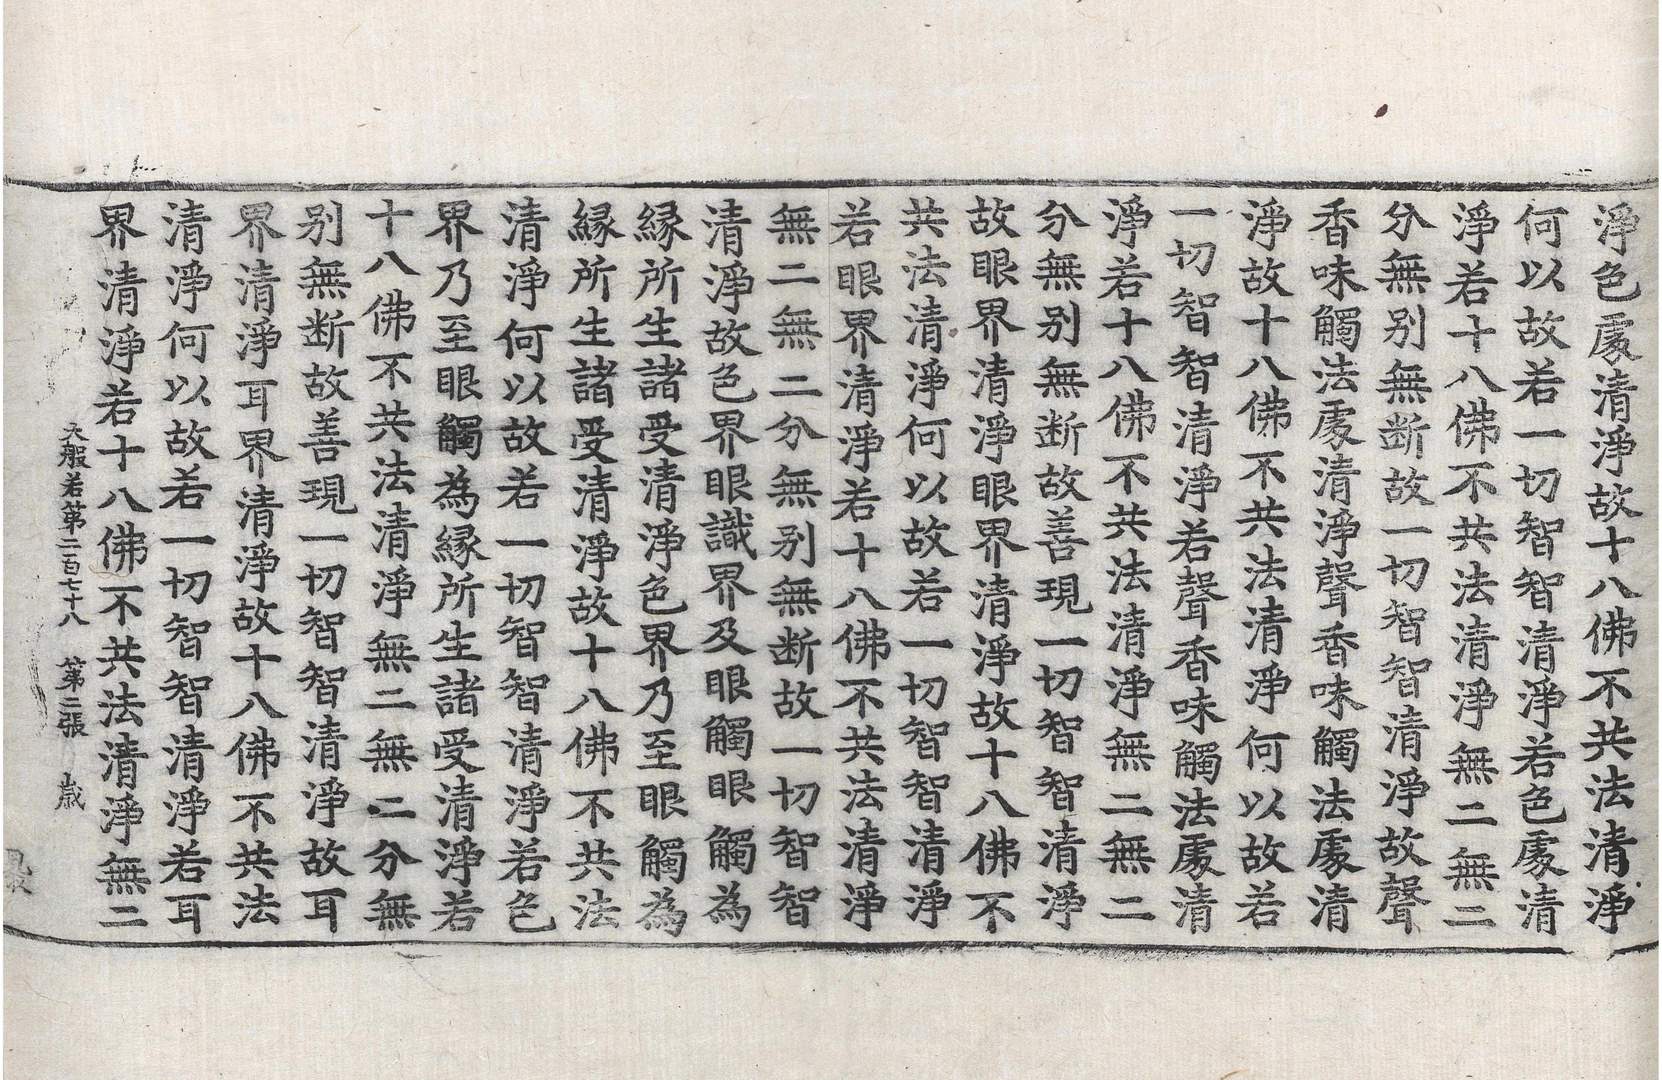 淨色處清淨故十八佛不共法清淨
何以故若一切智智清淨若色處清
淨若十八佛不共法清淨無二無二
分無别無断故一切智智清淨故聲
香味觸法處清淨聲香味觸法處清
淨故十八佛不共法清淨何以故若
一切智智清淨若聲香味觸法處清
淨若十八佛不共法清淨無二無二
分無别無断故善現一切智智清淨
故眼界清淨眼界清淨故十八佛不
共法清淨何以故若一切智智清淨
若眼界清淨若十八佛不共法清淨
無二無二分無别無断故一切智智
清淨故色界眼識界及眼觸眼觸為
縁所生諸受清淨色界乃至眼觸為
縁所生諸受清淨故十八佛不共法
清淨何以故若一切智智清淨若色
界乃至眼觸為縁所生諸受清淨若
十八佛不共法清淨無二無二分無
别無断故善現一切智智清淨故耳
界清淨耳界清淨故十八佛不共法
清淨何以故若一切智智清淨若耳
界清淨若十八佛不共法清淨無二
大般若第二百七十八 第二張 歲